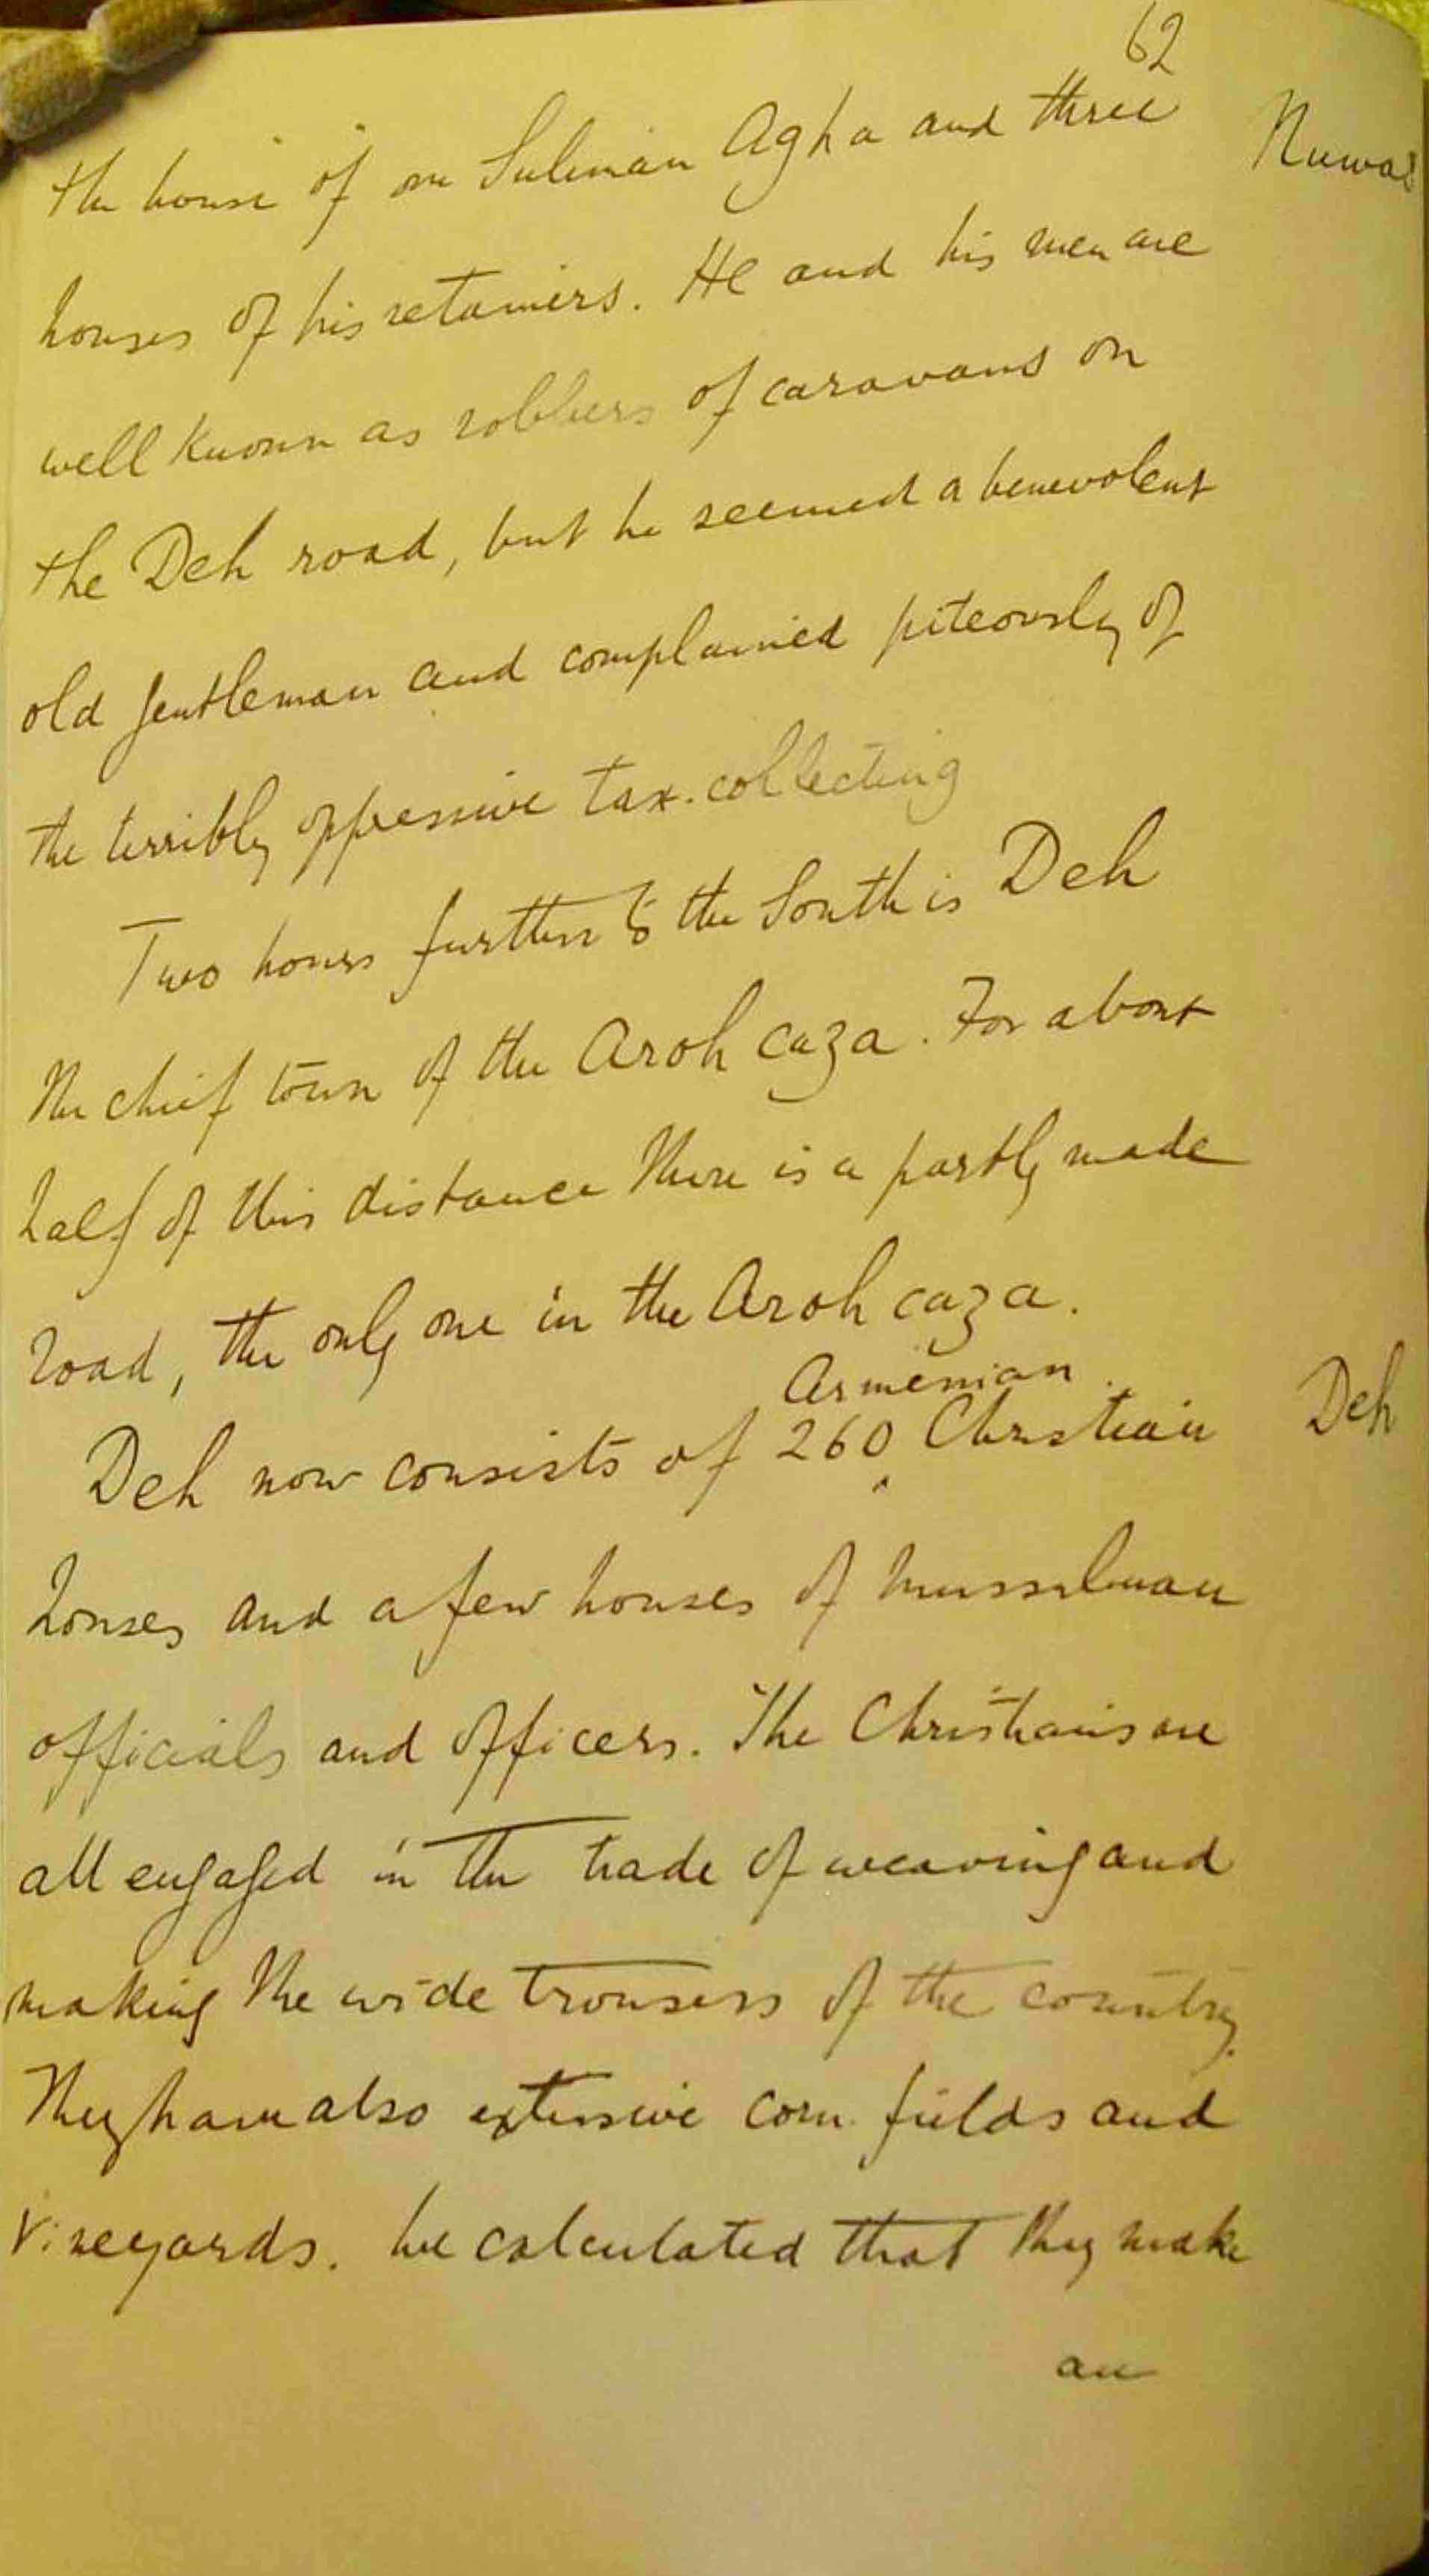 62
the house of one Suliman Agha and three
houses of his retainers. He and his men are
well known as robbers of caravans on
the Deh road, but he seemed a benevolent
old gentleman and complained piteously of
the terribly oppressive tax-collecting
Two hours further to the South is Deh
the chief town of the Aroh caza. For about
half of this distance there is a partly made
road, the only one in the Aroh caza.
Armenian
Deh now consists of 260 Christian
Deh
houses and a few houses of Mussulman
officials and officers. The Christians are
all engaged in the trade of weaving and
making the wide trousers of the country.
They have also extensive corn fields and
vineyards. We calculated that they make
an